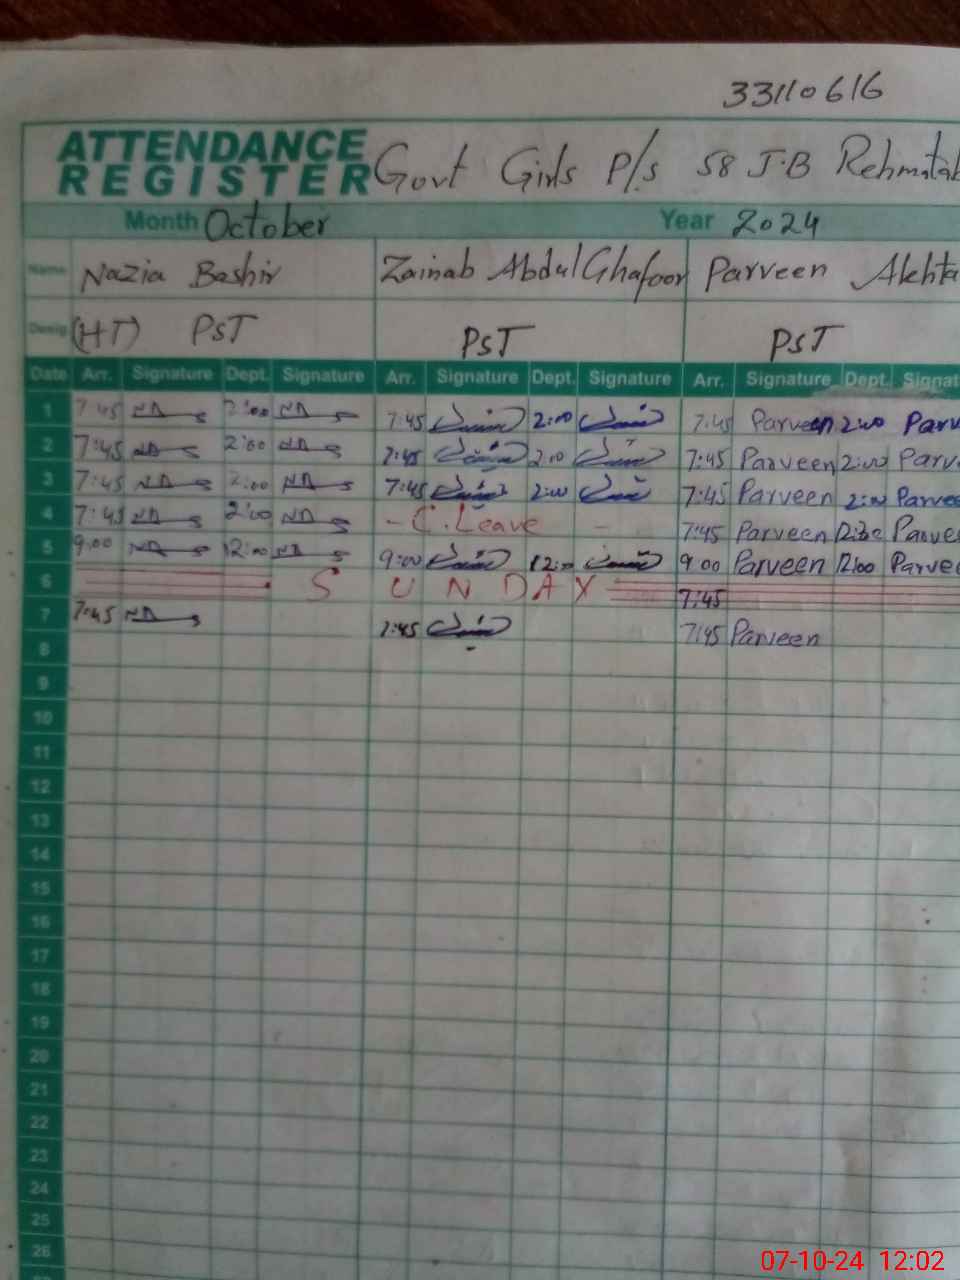 33110616
ATTENDANCE REGISTER Govt Girls P/s 58 J.B Rehmatab
Month October Year 2024
Name Nazia Bashir Zainab Abdul Ghafoor Parveen Akhta
Desig (HT) PST PST PST
Date Arr. Signature Dept. Signature Arr. Signature Dept. Signature Arr. Signature Dept. Signat
1 7:45 2:00 7:45 2:00 7:45 Parveen 2:00 Parv
2 7:45 2:00 7:45 2:00 7:45 Parveen 2:00 Parv
3 7:45 2:00 7:45 2:00 7:45 Parveen 2:00 Parvee
4 7:45 2:00 - C. Leave - 7:45 Parveen Parvee
5 9:00 12:00 9:00 12:00 9:00 Parveen 12:00 Parvee
6 SUNDAY 7:45
7 7:45 7:45 7:45 Parveen
8
9
10
11
12
13
14
15
16
17
18
19
20
21
22
23
24
25
26
07-10-24 12:02